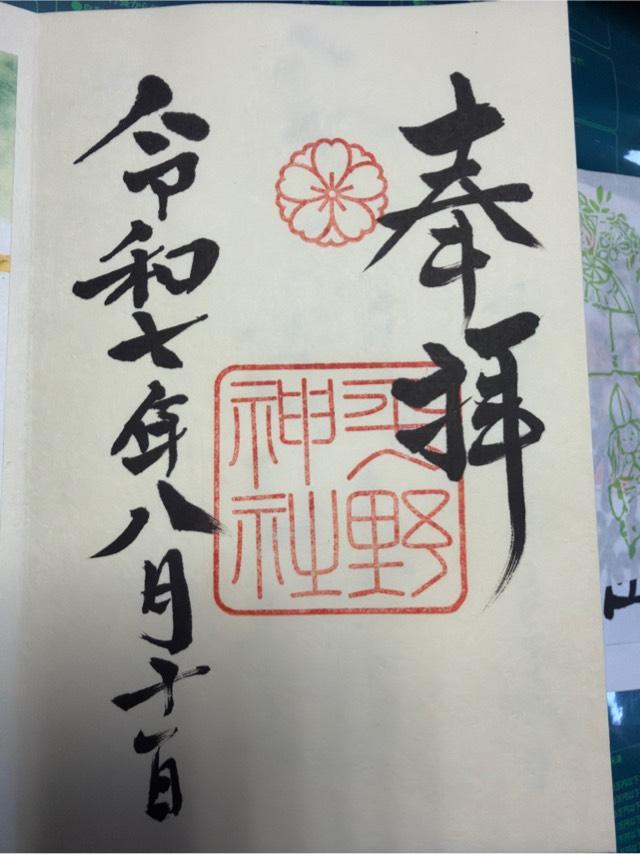 奉拝
平野
神社
令和七年八月十一日